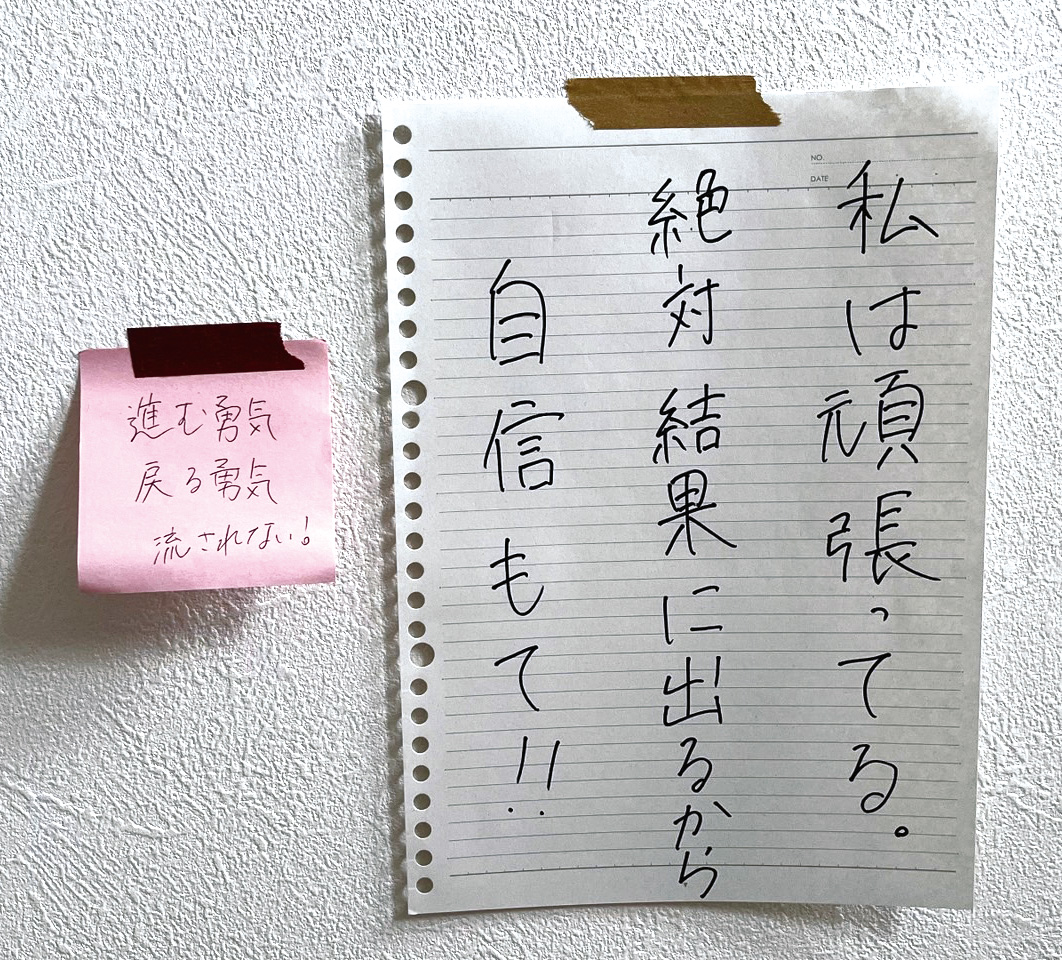 進む勇気
戻る勇気
流されない!
NO.
DATE
私は頑張ってる。
絶対結果に出るから
自信もて!!